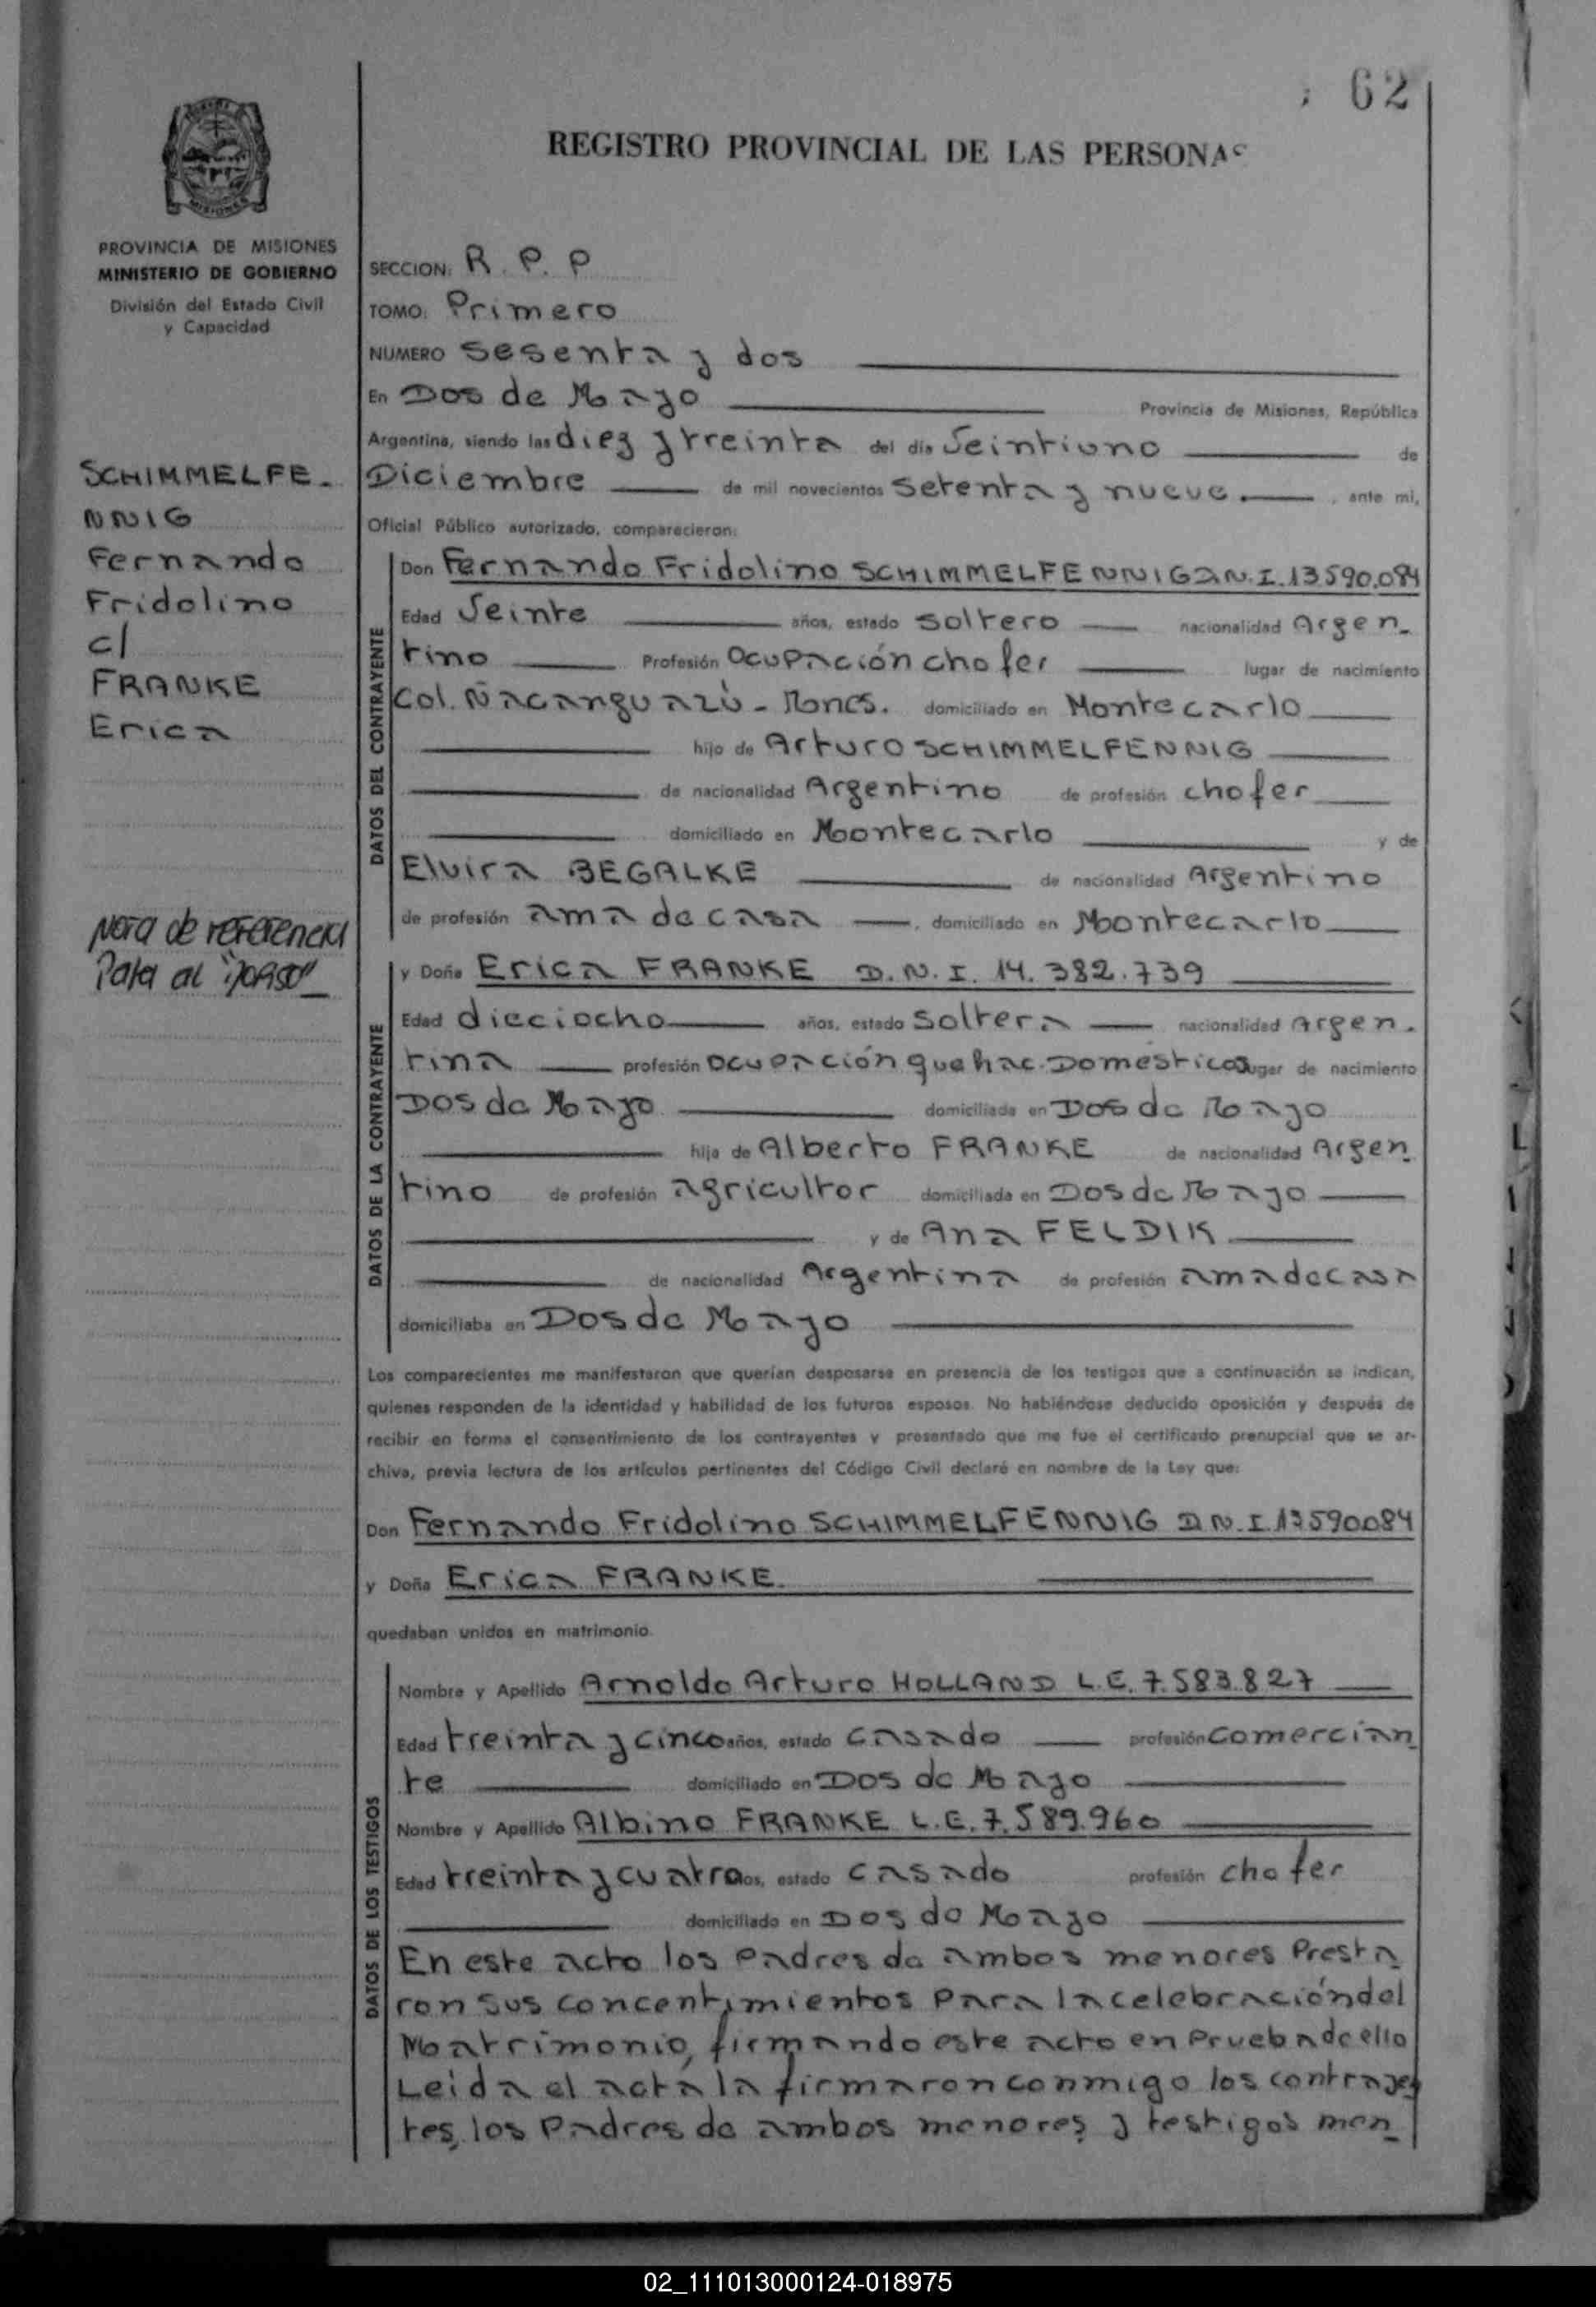 62
REGISTRO PROVINCIAL DE LAS PERSONAS
MISIONES
PROVINCIA DE MISIONES
MINISTERIO DE GOBIERNO
División del Estado Civil
y Capacidad
SCHIMMELFE-
NNIG
Fernando
Fridolino
c/
FRANKE
Erica
Nota de referencia
Pata al "DORSO"
SECCION: R. P. P
TOMO: Primero
NUMERO Sesenta y dos
En Dos de Mayo Provincia de Misiones, República
Argentina, siendo las diez y treinta del día Veintiuno de
Diciembre de mil novecientos Setenta y nueve. , ante mi,
Oficial Público autorizado, comparecieron:
DATOS DEL CONTRAYENTE
Don Fernando Fridolino SCHIMMELFENNIG D.N.I. 13.590.084
Edad Veinte años, estado Soltero nacionalidad Argen-
tino Profesión Ocupación chofer lugar de nacimiento
Col. Ñacanguazú - Mones. domiciliado en Montecarlo
hijo de Arturo SCHIMMELFENNIG
de nacionalidad Argentino de profesión chofer
domiciliado en Montecarlo y de
Elvira BEGALKE de nacionalidad Argentino
de profesión ama de casa , domiciliado en Montecarlo
DATOS DE LA CONTRAYENTE
y Doña Erica FRANKE D.N.I. 14.382.739
Edad dieciocho años, estado Soltera nacionalidad Argen-
tina profesión ocupación quehac. Domesticos lugar de nacimiento
Dos de Mayo domiciliada en Dos de Mayo
hija de Alberto FRANKE de nacionalidad Argen-
tino de profesión agricultor domiciliada en Dos de Mayo
y de Ana FELDIK
de nacionalidad Argentina de profesión ama de casa
domiciliaba en Dos de Mayo
Los comparecientes me manifestaron que querían desposarse en presencia de los testigos que a continuación se indican,
quienes responden de la identidad y habilidad de los futuros esposos. No habiéndose deducido oposición y después de
recibir en forma el consentimiento de los contrayentes y presentado que me fue el certificado prenupcial que se ar-
chiva, previa lectura de los artículos pertinentes del Código Civil declaré en nombre de la Ley que:
Don Fernando Fridolino SCHIMMELFENNIG D.N.I. 13590084
y Doña Erica FRANKE.
quedaban unidos en matrimonio.
DATOS DE LOS TESTIGOS
Nombre y Apellido Arnoldo Arturo HOLLAND L.E. 7.583.827
Edad treinta y cinco años, estado Casado profesión Comercian-
te domiciliado en Dos de Mayo
Nombre y Apellido Albino FRANKE L.E. 7.589.960
Edad treinta y cuatro años, estado Casado profesión chofer
domiciliado en Dos de Mayo
En este acto los Padres de ambos menores Presta-
ron sus concentimientos Para la celebración del
Matrimonio, firmando este acto en Prueba de ello
Leida el acta la firmaron conmigo los contrayen
tes, los Padres de ambos menores y testigos men-
02_111013000124-018975